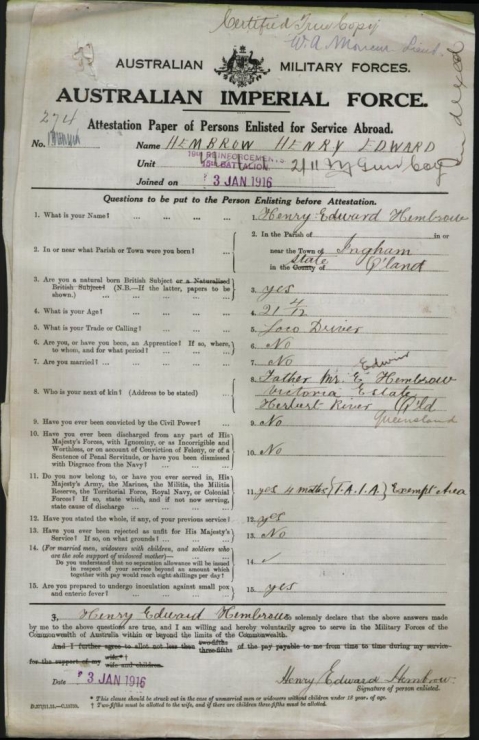 Certified True Copy
W. A. Lieut.
Indexed
AUSTRALIAN MILITARY FORCES.
AUSTRALIAN IMPERIAL FORCE.
274
Attestation Paper of Persons Enlisted for Service Abroad.
No. Name HEMBROW HENRY EDWARD
Unit REINFORCEMENTS BATTALION 2/11 M Gun Coy
Joined on 3 JAN 1916
Questions to be put to the Person Enlisting before Attestation.
1. What is your Name? ... ... ... Henry Edward Hembrow
2. In or near what Parish or Town were you born? ... 2. In the Parish of in or
near the Town of Ingham
in the County of State Q'land
3. Are you a natural born British Subject or a Naturalised British Subject? (N.B.—If the latter, papers to be shown.) ... ... 3. yes
4. What is your Age? ... ... ... 4. 21 7/12
5. What is your Trade or Calling? ... ... 5. Loco Driver
6. Are you, or have you been, an Apprentice? If so, where, to whom, and for what period? ... ... 6. No
7. Are you married? ... ... ... 7. No
8. Who is your next of kin? (Address to be stated) 8. Father Mr. E Edwin Hembrow
Victoria Estate
Herbert River Q'ld
Queensland
9. Have you ever been convicted by the Civil Power? ... 9. No
10. Have you ever been discharged from any part of His Majesty's Forces, with Ignominy, or as Incorrigible and Worthless, or on account of Conviction of Felony, or of a Sentence of Penal Servitude, or have you been dismissed with Disgrace from the Navy? ... ... 10. No
11. Do you now belong to, or have you ever served in, His Majesty's Army, the Marines, the Militia, the Militia Reserve, the Territorial Force, Royal Navy, or Colonial Forces? If so, state which, and if not now serving, state cause of discharge ... ... 11. yes 4 mths (T.A.I.A.) Exempt Area
12. Have you stated the whole, if any, of your previous service? 12. yes
13. Have you ever been rejected as unfit for His Majesty's Service? If so, on what grounds? ... ... 13. No
14. (For married men, widowers with children, and soldiers who are the sole support of widowed mother)—
Do you understand that no separation allowance will be issued in respect of your service beyond an amount which together with pay would reach eight shillings per day? 14. ✓
15. Are you prepared to undergo inoculation against small pox and enteric fever? ... ... ... 15. yes
3. Henry Edward Hembrow solemnly declare that the above answers made
by me to the above questions are true, and I am willing and hereby voluntarily agree to serve in the Military Forces of the
Commonwealth of Australia within or beyond the limits of the Commonwealth.
And I further agree to allot not less than two-fifths three-fifths of the pay payable to me from time to time during my service
for the support of my wife wife and children.
Date 3 JAN 1916 Henry Edward Hembrow.
Signature of person enlisted.
* This clause should be struck out in the case of unmarried men or widowers without children under 18 years of age.
† Two-fifths must be allotted to the wife, and if there are children three-fifths must be allotted.